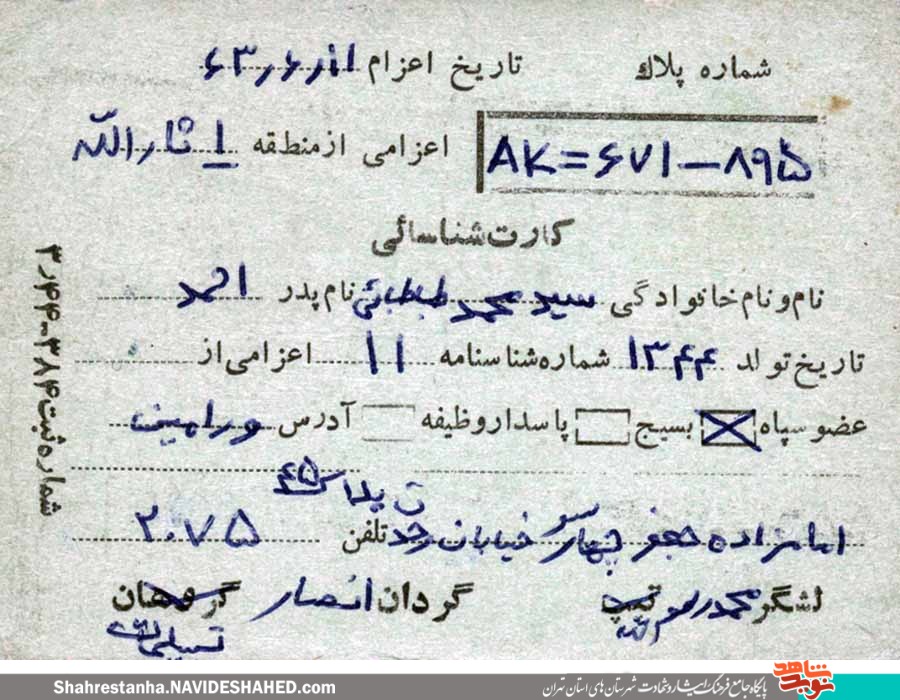 شماره پلاك تاریخ اعزام ۶۳ر۶ر۱۱
AK=۶۷۱-۸۹۵ اعزامی ازمنطقه ۱ ثارالله
کارت شناسائی
نام و نام خانوادگی سید محمد طباطبائی نام پدر احمد
تاریخ تولد ۱۳۴۴ شماره شناسنامه ۱۱ اعزامی از
عضو سپاه بسیج پاسدار وظیفه آدرس ورامین
پلاک ۴۵
امامزاده جعفر چهارسو خیابان تلفن ۲۰۷۵
لشگر محمد رسول الله تیپ گردان انصار گروهان
شماره ثبت ۳۸۴
Shahrestanha.NAVIDESHAHED.com
پایگاه جامع فرهنگ ایثار و شهادت شهرستان های استان تهران
نوید شاهد